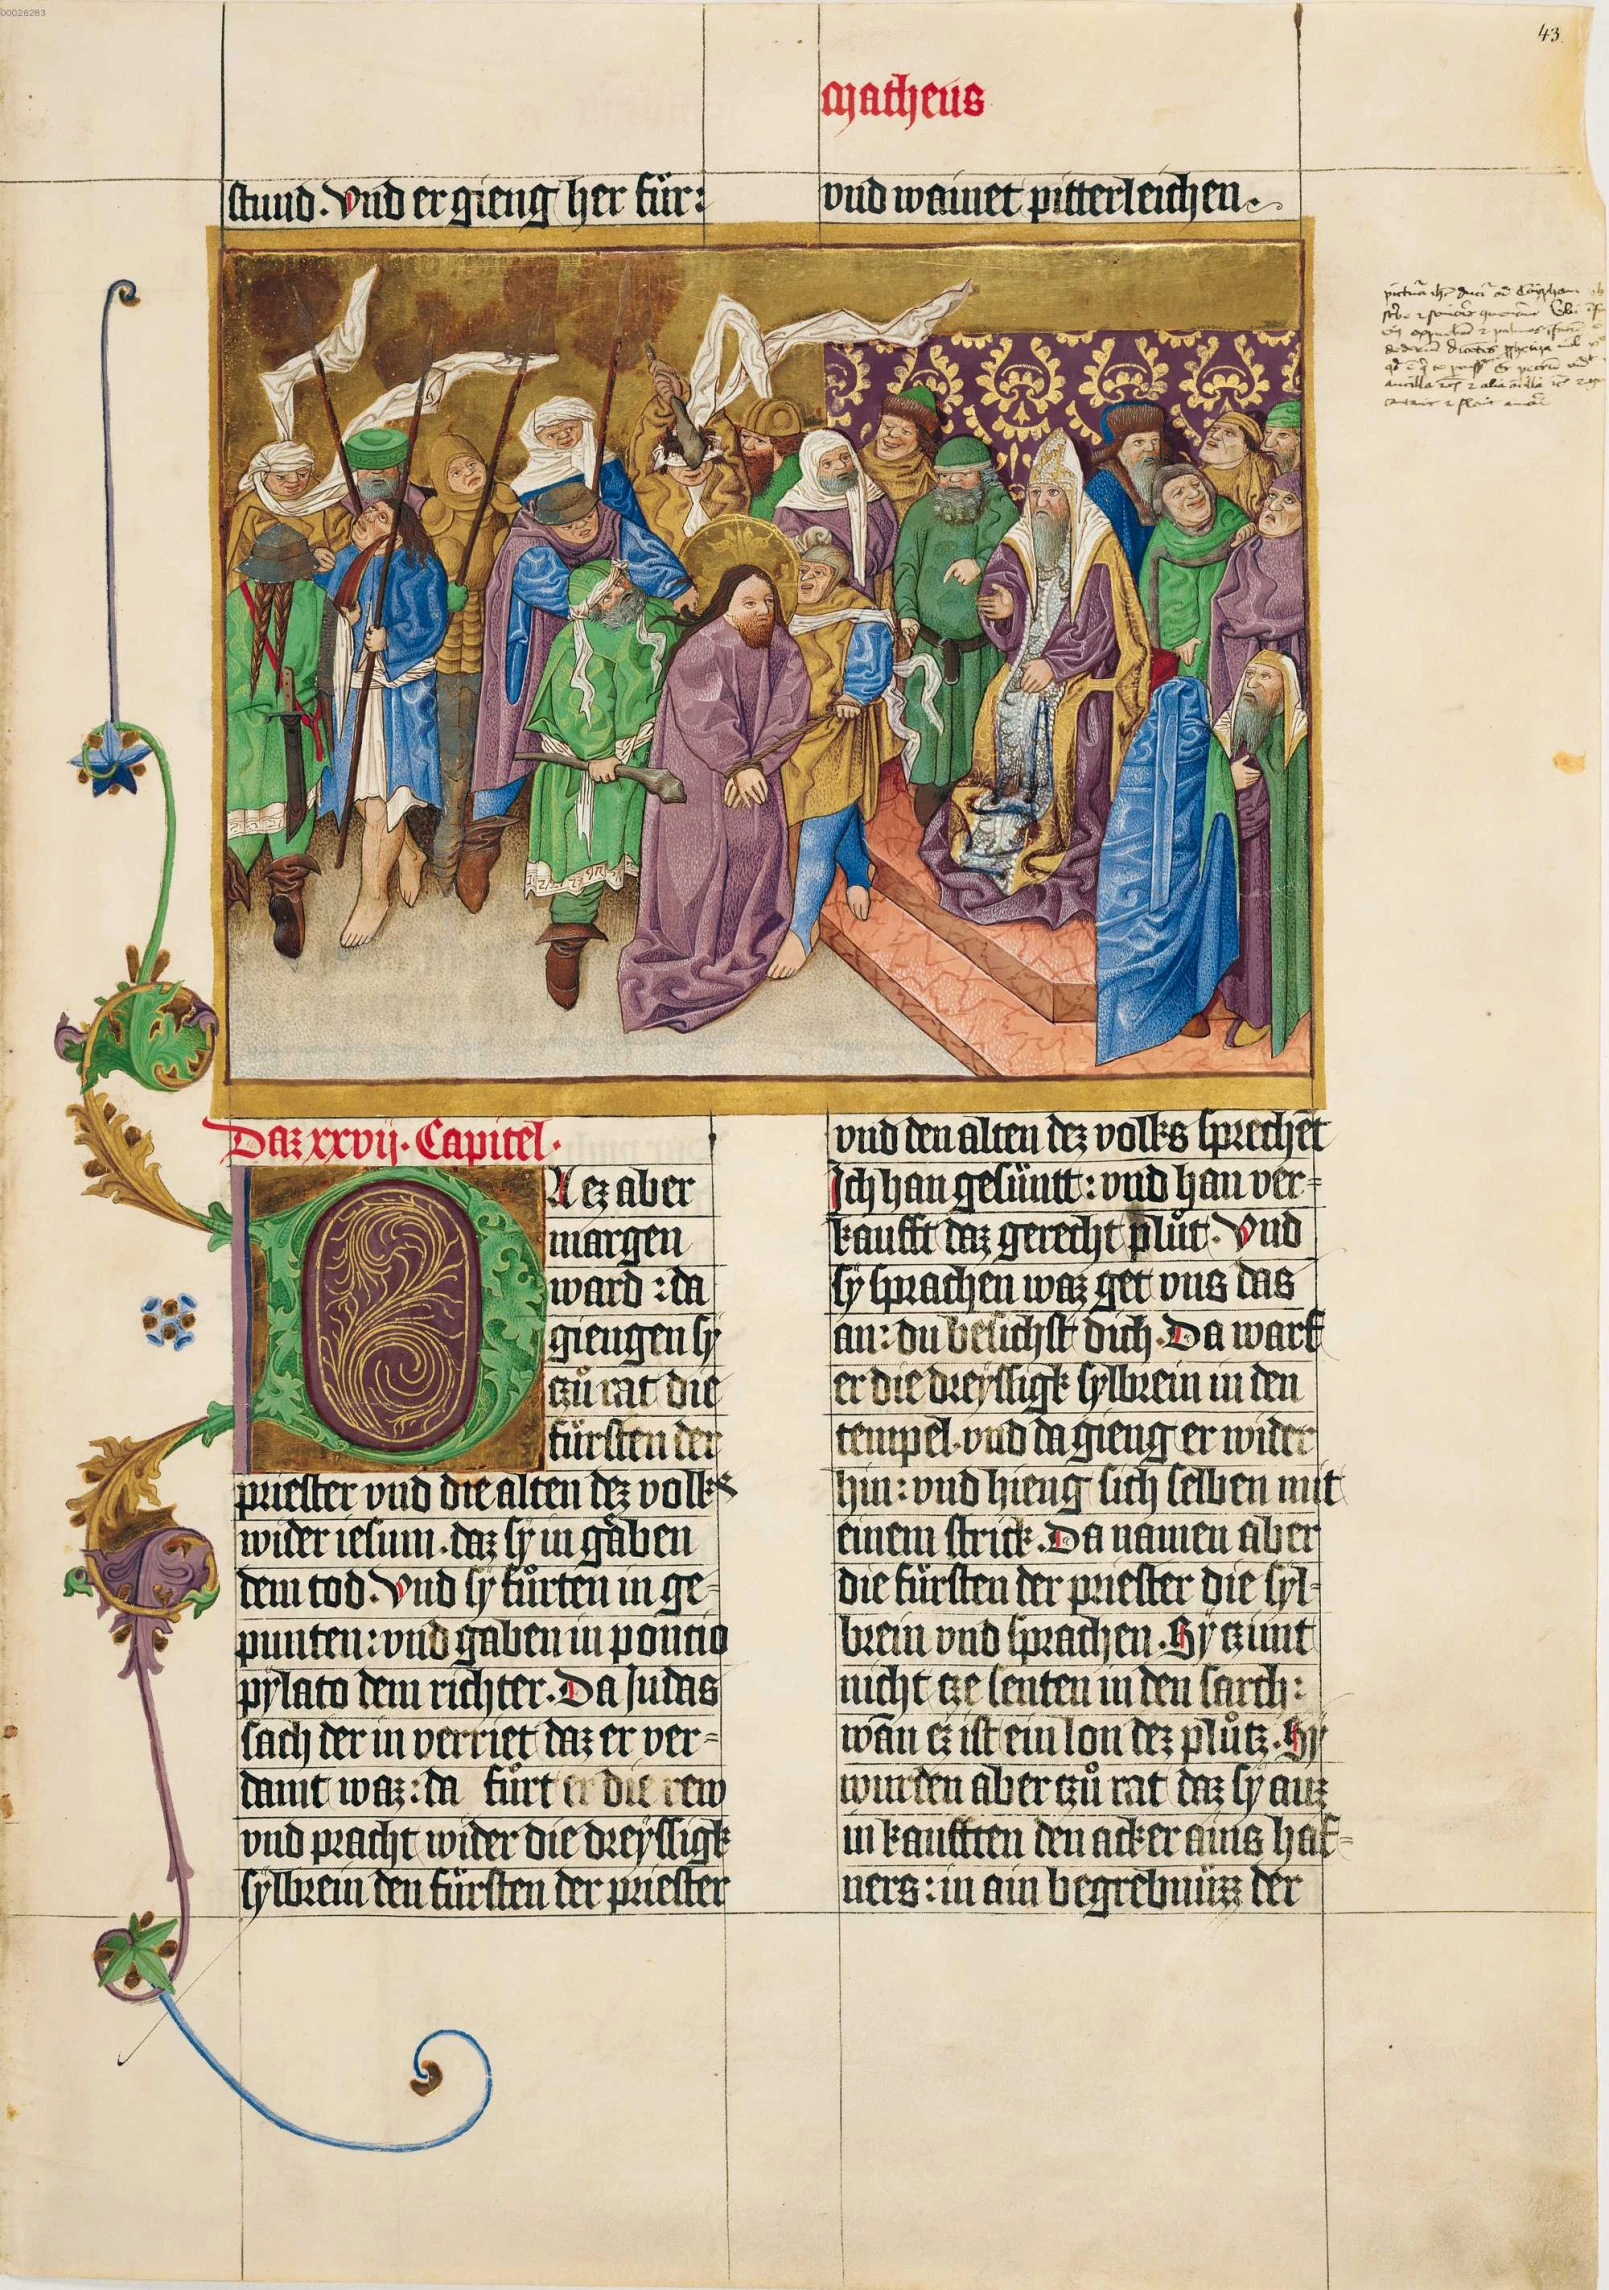 00026283
43.
matheus
stund. Vnd er gieng her für:
vnd wainet pitterleichen.
Daz xxvij. Capitel.
DA ez aber
margen
ward: da
giengen sy
czů rat die
fürsten der
priester vnd die alten dez volks
wider iesum. daz sy in gäben
dem tod. Vnd sy fůrten in ge=
punten: vnd gaben in poncio
pylato dem richter. Da Judas
sach der in verriet daz er ver=
damt waz: da fůrt er die rew
vnd pracht wider die dreyssigk
sylbrein den fürsten der priester
vnd den alten dez volks sprechēt
Ich han gesüntt: vnd han ver=
kaufft daz gerecht plůt. Vnd
sy sprachen waz get vns das
an: du besichst dich. Da warf
er die dreyssigk sylbrein in den
tempel. vnd da gieng er wider
hin: vnd hieng sich selben mit
einem strick. Da namen aber
die fürsten der priester die syl=
brein vnd sprachen. Sy czimt
nicht cze senten in den sarch:
wān ez ist ein lon dez plůtz. Sy
wurden aber czů rat daz sy auz
in kaufften den acker ains haf=
ners: in ain begrebnüzz der